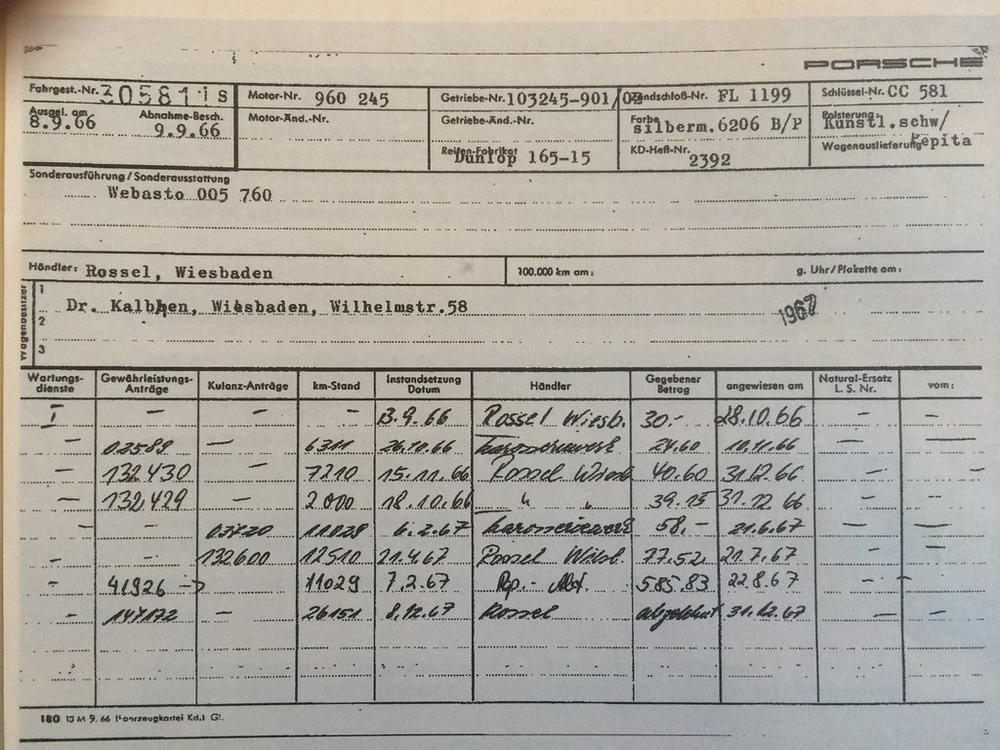 PORSCHE
Fahrgest.-Nr. 305811 S Motor-Nr. 960 245 Getriebe-Nr. 103245-901/02 Zündschloß-Nr. FL 1199 Schlüssel-Nr. CC 581
Ausgel. am 8.9.66 Abnahme-Besch. 9.9.66 Motor-Änd.-Nr. Getriebe-Änd.-Nr. Farbe silberm.6206 B/P Polsterung Kunstl.schw/
Reifen-Fabrikat Dunlop 165-15 KD-Heft-Nr. 2392 Wagenauslieferung Pepita
Sonderausführung/Sonderausstattung
Webasto 005 760
Händler: Rossel, Wiesbaden 100.000 km am: g. Uhr/Plakette am:
Wagenbesitzer
1 Dr. Kalbhen, Wiesbaden, Wilhelmstr.58 1967
2
3
Wartungs-dienste Gewährleistungs-Anträge Kulanz-Anträge km-Stand Instandsetzung Datum Händler Gegebener Betrag angewiesen am Natural-Ersatz L. S. Nr. vom:
I — — — 13.9.66 Rossel Wiesb. 30.- 28.10.66 — —
— 03589 — 6311 26.10.66 Karosseriewerk 24.60 10.11.66 — —
— 132430 — 7210 15.11.66 Rossel Wiesb 40.60 31.12.66 — —
— 132429 — 2000 18.10.66 " " 39.15 31.12.66 — —
— 11028 6.2.67 Karosseriewerk 58,- 21.6.67 — —
— — 132600 12510 21.4.67 Rossel Wiesb. 77.52 21.7.67 — —
— 41926 → 11029 7.2.67 Rep.- Abt. 585.83 22.8.67 — —
147172 — 26151 8.12.67 Rossel abgelehnt 31.12.67 — —
180 10 M 9. 66 Fahrzeugkartei Kd.1 Gl.